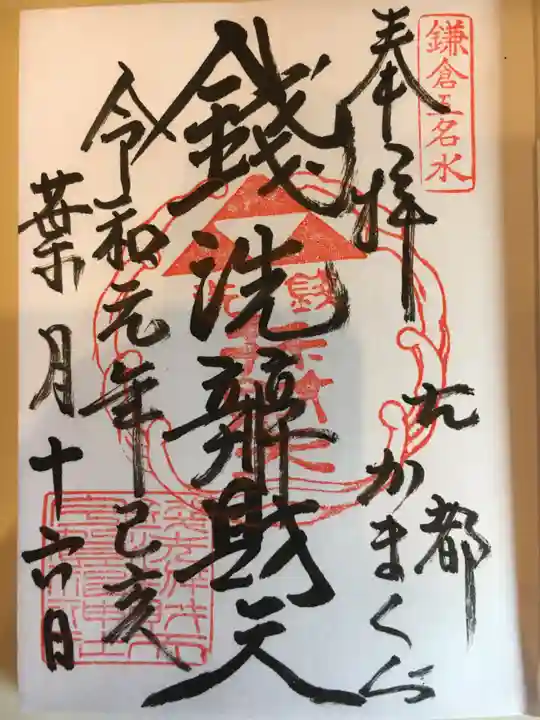 鎌倉五名水
奉拝
古都
かまくら
銭洗辨財天
令和元年己亥
葉月十六日